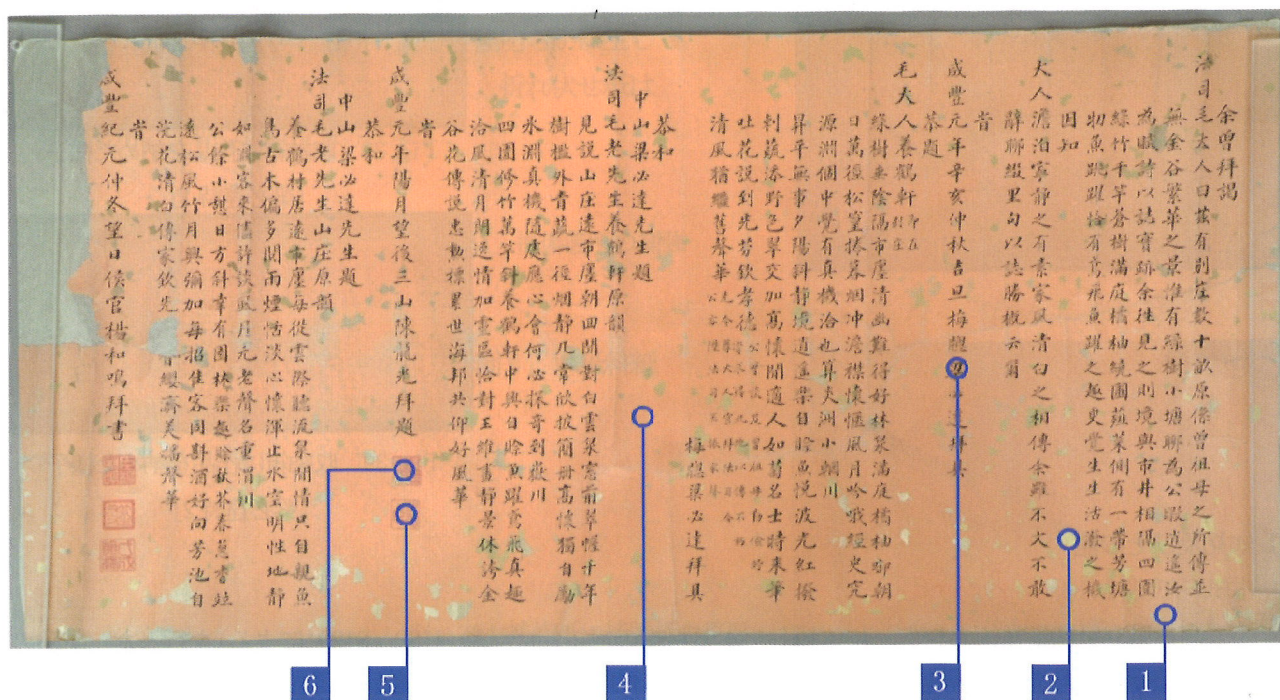 余曾拜謁
法司毛大人曰茲有別崖數十畝原係曾祖母之所傳並
無金谷繁華之景惟有綠樹小塘聊為公暇逍遙汝
為賦詩以誌寶跡余往見之則境與市井相隔四圍
綠竹千竿蒼樹滿庭橘柚繞園菰菜側有一帶芳塘
物魚跳躍恰有鳶飛魚躍之趣更覺生生活潑之機
因知
大人澹泊寧靜之有素家風清白之相傳余雖不文不敢
辭聊綴里句以誌勝概云爾
旹
咸豐元年辛亥仲秋吉旦梅
恭題
毛大人養鶴軒
綠樹垂陰隔市廛清幽難得好林泉滿庭橘柚鄉朝
日萬徑松篁捧暮烟冲澹襟懷愜風月吟哦經史究
源淵個中覺有真機洽也算大洲小輞川
昇平無事夕陽斜靜境逍遙葉自賒魚悅波光紅撥
刺蔬添野色翠交加高懷閒適人如菊名士時來筆
吐花說到先芬欽孝德
清風猶繼舊聲華
梅 梁必達拜具
恭和
中山梁必達先生題
法司毛老先生養鶴軒原韻
見說山庄遠市廛朝回閒對白雲泉窓前翠幄千年
樹檻外青蔬一徑烟靜几常欣披簡册高懷獨自勵
氷淵真機隨處應心會何必探奇到嶽川
四圍修竹萬竿斜養鶴軒中興自賒魚躍鳶飛真趣
洽風清月朗逸情加靈區恰對王維畫靜景休誇金
谷花傳說忠勲標累世海邦共仰好風華
旹
咸豐元年陽月望後三山陳龍光拜題
恭和
中山梁必達先生題
法司毛老先生山庄原韻
養鶴村居遠市廛每從雲際聽流泉閒情只自親魚
鳥古木偏多閱雨煙恬淡心懷渾止水空明性地靜
如 客來儘許談風月元老聲名重渭川
公餘小憩日方斜幸有園林樂趣賒秋芥春葱香
遠松風竹月興彌加每招佳客同斟酒好向芳池自
浣花清白傳家欽先 簪纓濟美播聲華
旹
咸豐紀元仲冬望日侯官楊和鳴拜書
6
5
4
3
2
1